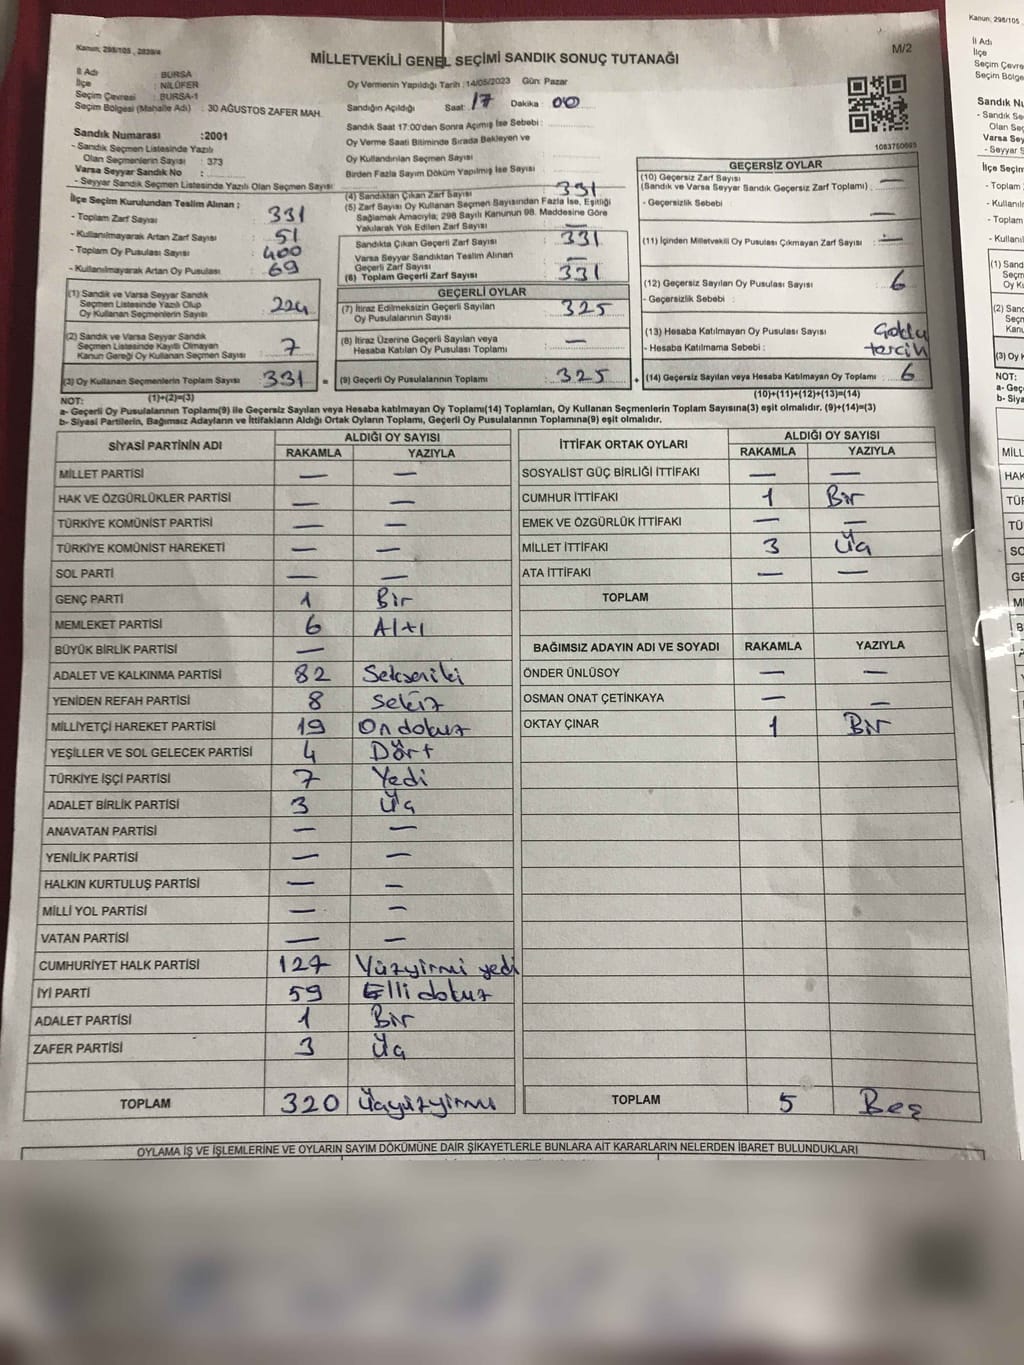 Kanun, 298/105 , 2839/4
M/2
MİLLETVEKİLİ GENEL SEÇİMİ SANDIK SONUÇ TUTANAĞI
İl Adı : BURSA
İlçe : NİLÜFER
Seçim Çevresi : BURSA-1
Seçim Bölgesi (Mahalle Adı) : 30 AĞUSTOS ZAFER MAH.
Oy Vermenin Yapıldığı Tarih : 14/05/2023 Gün: Pazar
Sandığın Açıldığı Saat: 17 Dakika : 00
Sandık Saat 17:00'den Sonra Açımış İse Sebebi :
Oy Verme Saati Bitiminde Sırada Bekleyen ve
Oy Kullandırılan Seçmen Sayısı
Birden Fazla Sayım Döküm Yapılmış İse Sayısı
1083750695
Sandık Numarası :2001
- Sandık Seçmen Listesinde Yazılı
Olan Seçmenlerin Sayısı : 373
Varsa Seyyar Sandık No :
- Seyyar Sandık Seçmen Listesinde Yazılı Olan Seçmen Sayısı
İlçe Seçim Kurulundan Teslim Alınan ;
- Toplam Zarf Sayısı 331
- Kullanılmayarak Artan Zarf Sayısı 51
- Toplam Oy Pusulası Sayısı 400
- Kullanılmayarak Artan Oy Pusulası 69
(1) Sandık ve Varsa Seyyar Sandık
Seçmen Listesinde Yazılı Olup
Oy Kullanan Seçmenlerin Sayısı 224
(2) Sandık ve Varsa Seyyar Sandık
Seçmen Listesinde Kayıtlı Olmayan
Kanun Gereği Oy Kullanan Seçmen Sayısı 7
(3) Oy Kullanan Seçmenlerin Toplam Sayısı 331 =
(4) Sandıktan Çıkan Zarf Sayısı 331
(5) Zarf Sayısı Oy Kullanan Seçmen Sayısından Fazla İse, Eşitliği
Sağlamak Amacıyla; 298 Sayılı Kanunun 98. Maddesine Göre
Yakılarak Yok Edilen Zarf Sayısı —
Sandıkta Çıkan Geçerli Zarf Sayısı 331
Varsa Seyyar Sandıktan Teslim Alınan
Geçerli Zarf Sayısı —
(6) Toplam Geçerli Zarf Sayısı 331
GEÇERLİ OYLAR
(7) İtiraz Edilmeksizin Geçerli Sayılan
Oy Pusulalarının Sayısı 325
(8) İtiraz Üzerine Geçerli Sayılan veya
Hesaba Katılan Oy Pusulası Toplamı : —
(9) Geçerli Oy Pusulalarının Toplamı : 325 +
GEÇERSİZ OYLAR
(10) Geçersiz Zarf Sayısı
(Sandık ve Varsa Seyyar Sandık Geçersiz Zarf Toplamı) —
- Geçersizlik Sebebi : —
(11) İçinden Milletvekili Oy Pusulası Çıkmayan Zarf Sayısı : —
(12) Geçersiz Sayılan Oy Pusulası Sayısı : 6
- Geçersizlik Sebebi :
(13) Hesaba Katılmayan Oy Pusulası Sayısı : Çoklu
- Hesaba Katılmama Sebebi : tercih
(14) Geçersiz Sayılan veya Hesaba Katılmayan Oy Toplamı : 6
NOT: (1)+(2)=(3) (10)+(11)+(12)+(13)=(14)
a- Geçerli Oy Pusulalarının Toplamı(9) ile Geçersiz Sayılan veya Hesaba katılmayan Oy Toplamı(14) Toplamları, Oy Kullanan Seçmenlerin Toplam Sayısına(3) eşit olmalıdır. (9)+(14)=(3)
b- Siyasi Partilerin, Bağımsız Adayların ve İttifakların Aldığı Ortak Oyların Toplamı, Geçerli Oy Pusulalarının Toplamına(9) eşit olmalıdır.
SİYASİ PARTİNİN ADI ALDIĞI OY SAYISI
RAKAMLA YAZIYLA
MİLLET PARTİSİ — —
HAK VE ÖZGÜRLÜKLER PARTİSİ — —
TÜRKİYE KOMÜNİST PARTİSİ — —
TÜRKİYE KOMÜNİST HAREKETİ — —
SOL PARTİ — —
GENÇ PARTİ 1 Bir
MEMLEKET PARTİSİ 6 Altı
BÜYÜK BİRLİK PARTİSİ —
ADALET VE KALKINMA PARTİSİ 82 Sekseniki
YENİDEN REFAH PARTİSİ 8 Sekiz
MİLLİYETÇİ HAREKET PARTİSİ 19 Ondokuz
YEŞİLLER VE SOL GELECEK PARTİSİ 4 Dört
TÜRKİYE İŞÇİ PARTİSİ 7 Yedi
ADALET BİRLİK PARTİSİ 3 Üç
ANAVATAN PARTİSİ — —
YENİLİK PARTİSİ — —
HALKIN KURTULUŞ PARTİSİ — —
MİLLİ YOL PARTİSİ — —
VATAN PARTİSİ — —
CUMHURİYET HALK PARTİSİ 127 Yüzyirmi yedi
İYİ PARTİ 59 Elli dokuz
ADALET PARTİSİ 1 Bir
ZAFER PARTİSİ 3 Üç
TOPLAM 320 Üçyüzyirmi
İTTİFAK ORTAK OYLARI ALDIĞI OY SAYISI
RAKAMLA YAZIYLA
SOSYALİST GÜÇ BİRLİĞİ İTTİFAKI — —
CUMHUR İTTİFAKI 1 Bir
EMEK VE ÖZGÜRLÜK İTTİFAKI — —
MİLLET İTTİFAKI 3 Üç
ATA İTTİFAKI — —
TOPLAM
BAĞIMSIZ ADAYIN ADI VE SOYADI RAKAMLA YAZIYLA
ÖNDER ÜNLÜSOY — —
OSMAN ONAT ÇETİNKAYA — —
OKTAY ÇINAR 1 Bir
TOPLAM 5 Beş
OYLAMA İŞ VE İŞLEMLERİNE VE OYLARIN SAYIM DÖKÜMÜNE DAİR ŞİKAYETLERLE BUNLARA AİT KARARLARIN NELERDEN İBARET BULUNDUKLARI
Kanun, 298/105
İl Adı
İlçe
Seçim Çevre
Seçim Bölge